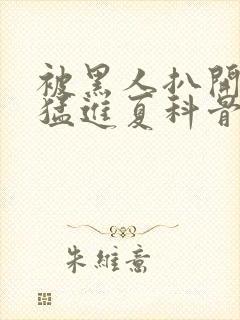 被黑人扒開
猛進夏科骨
朱維意